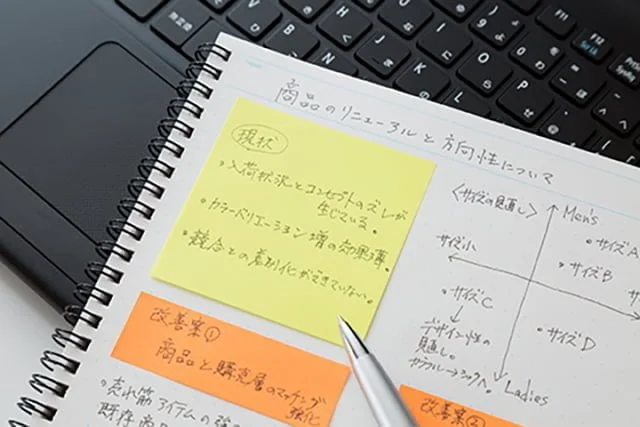 商品のリニューアルと方向性について
現状
・入荷状況とコンセプトのズレが
生じている。
・カラーバリエーション増の効果薄。
・競合との差別化ができていない。
改善案①
商品と購売層のマッチング
強化
・売れ筋アイテムの強
既存商
<サイズの見直し>
Men's
・サイズA
サイズ小
・サイズB
・サイズC
デザイン性の
見直し。
カラフル→シックへ。
・サイズD
Ladies
改善案②